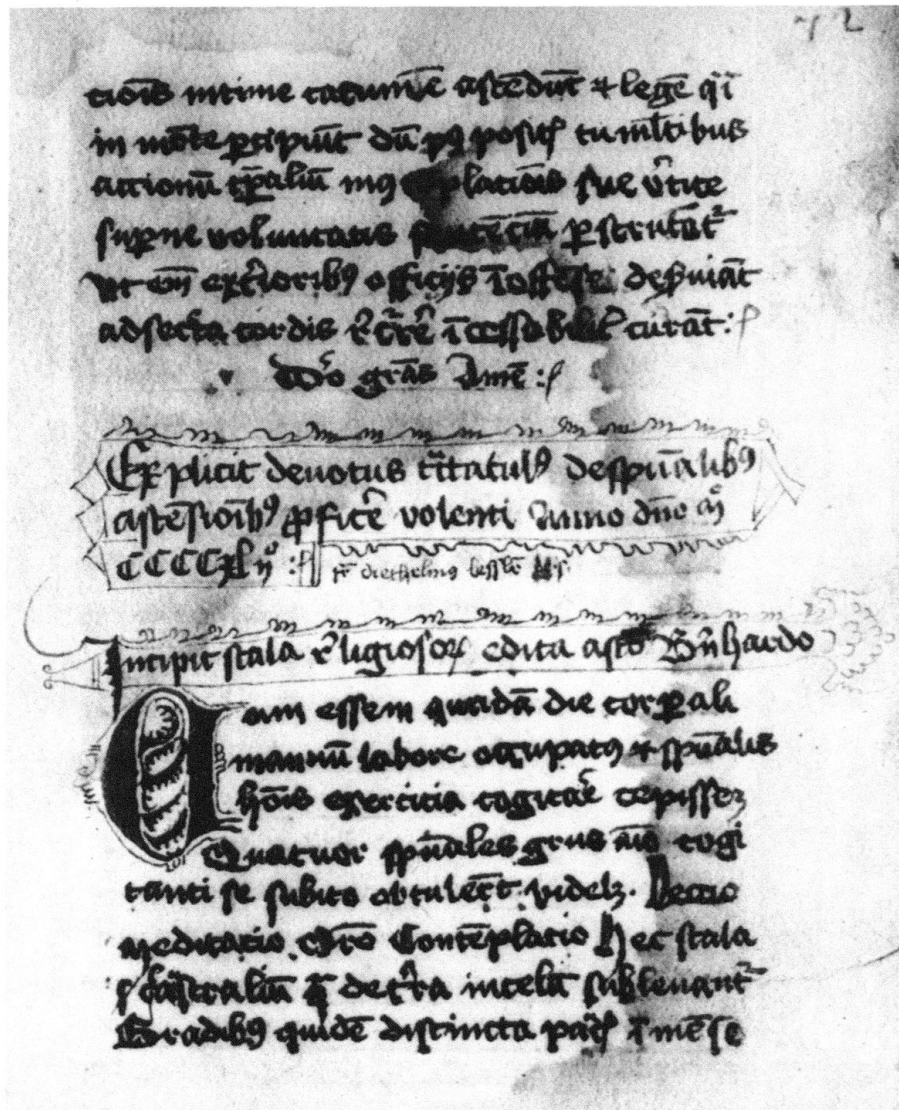 72
cōis intime cacumīe ascēdūt & legē qͥ
in mōte ꝑcipiūt dū pꝰ positꝭ tumĺtibus
actionū tꝑaliū
suꝑne voluntatis sēntēciā ꝑscrutāt᷑
ut exterioribꝰ officijs deẜuiāt
ad secͬta cordis īcessabilit̉ curāt :
dēo grās Amē :
Explicit deuotus tͣctatulꝰ de spūalibꝰ
ascēsioībꝰ ꝓficēͬ volenti Anno dn̄o mͦ
CCCCxLijͦ :
fr̄ diethelmꝰ
Incipit scala religiosoꝝ edita a scō Bn̄hardo
Cum essem quidā die corꝑali
manuū labore occupatꝰ & spūalis
hōis exercicia cogitaͤ cepissez
Quatuor spūales grus aīo cogi
tanti se subito obtulerūt videlz. Leccio
Meditacio Orō Contēplacio Hec scala
ē claustraliū qͣ de tͬra in celū subleuant᷑
Gradibꝰ quidē distincta paucꝭ īmēse